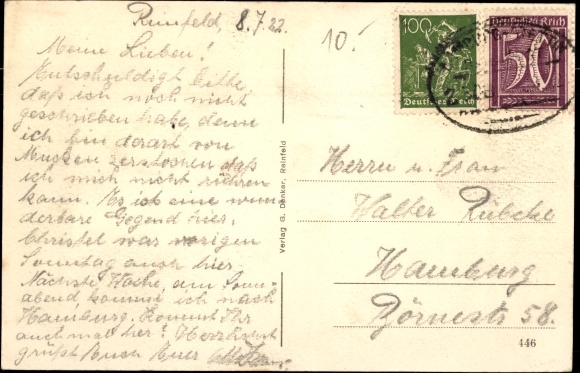 Reinfeld, 8.7.22.
Meine Lieben!
Entschuldigt bitte,
daß ich noch nicht
geschrieben habe, denn
ich bin derart von
Mücken zerstochen daß
ich mich nicht rühren
kann. Es ist eine wun
derbare Gegend hier,
Christel war vorigen
Sonntag auch hier.
Nächste Woche, am Sonn
abend, komme ich nach
Hamburg. Kommt Ihr
auch mal her? Herzlichst
grüßt Euch Euer
Verlag G. Danker, Reinfeld
10.
100
Deutsches Reich
Deutsches Reich
50
Herrn u. Frau
Walter Rübcke
Hamburg
Börnestr 58.
446